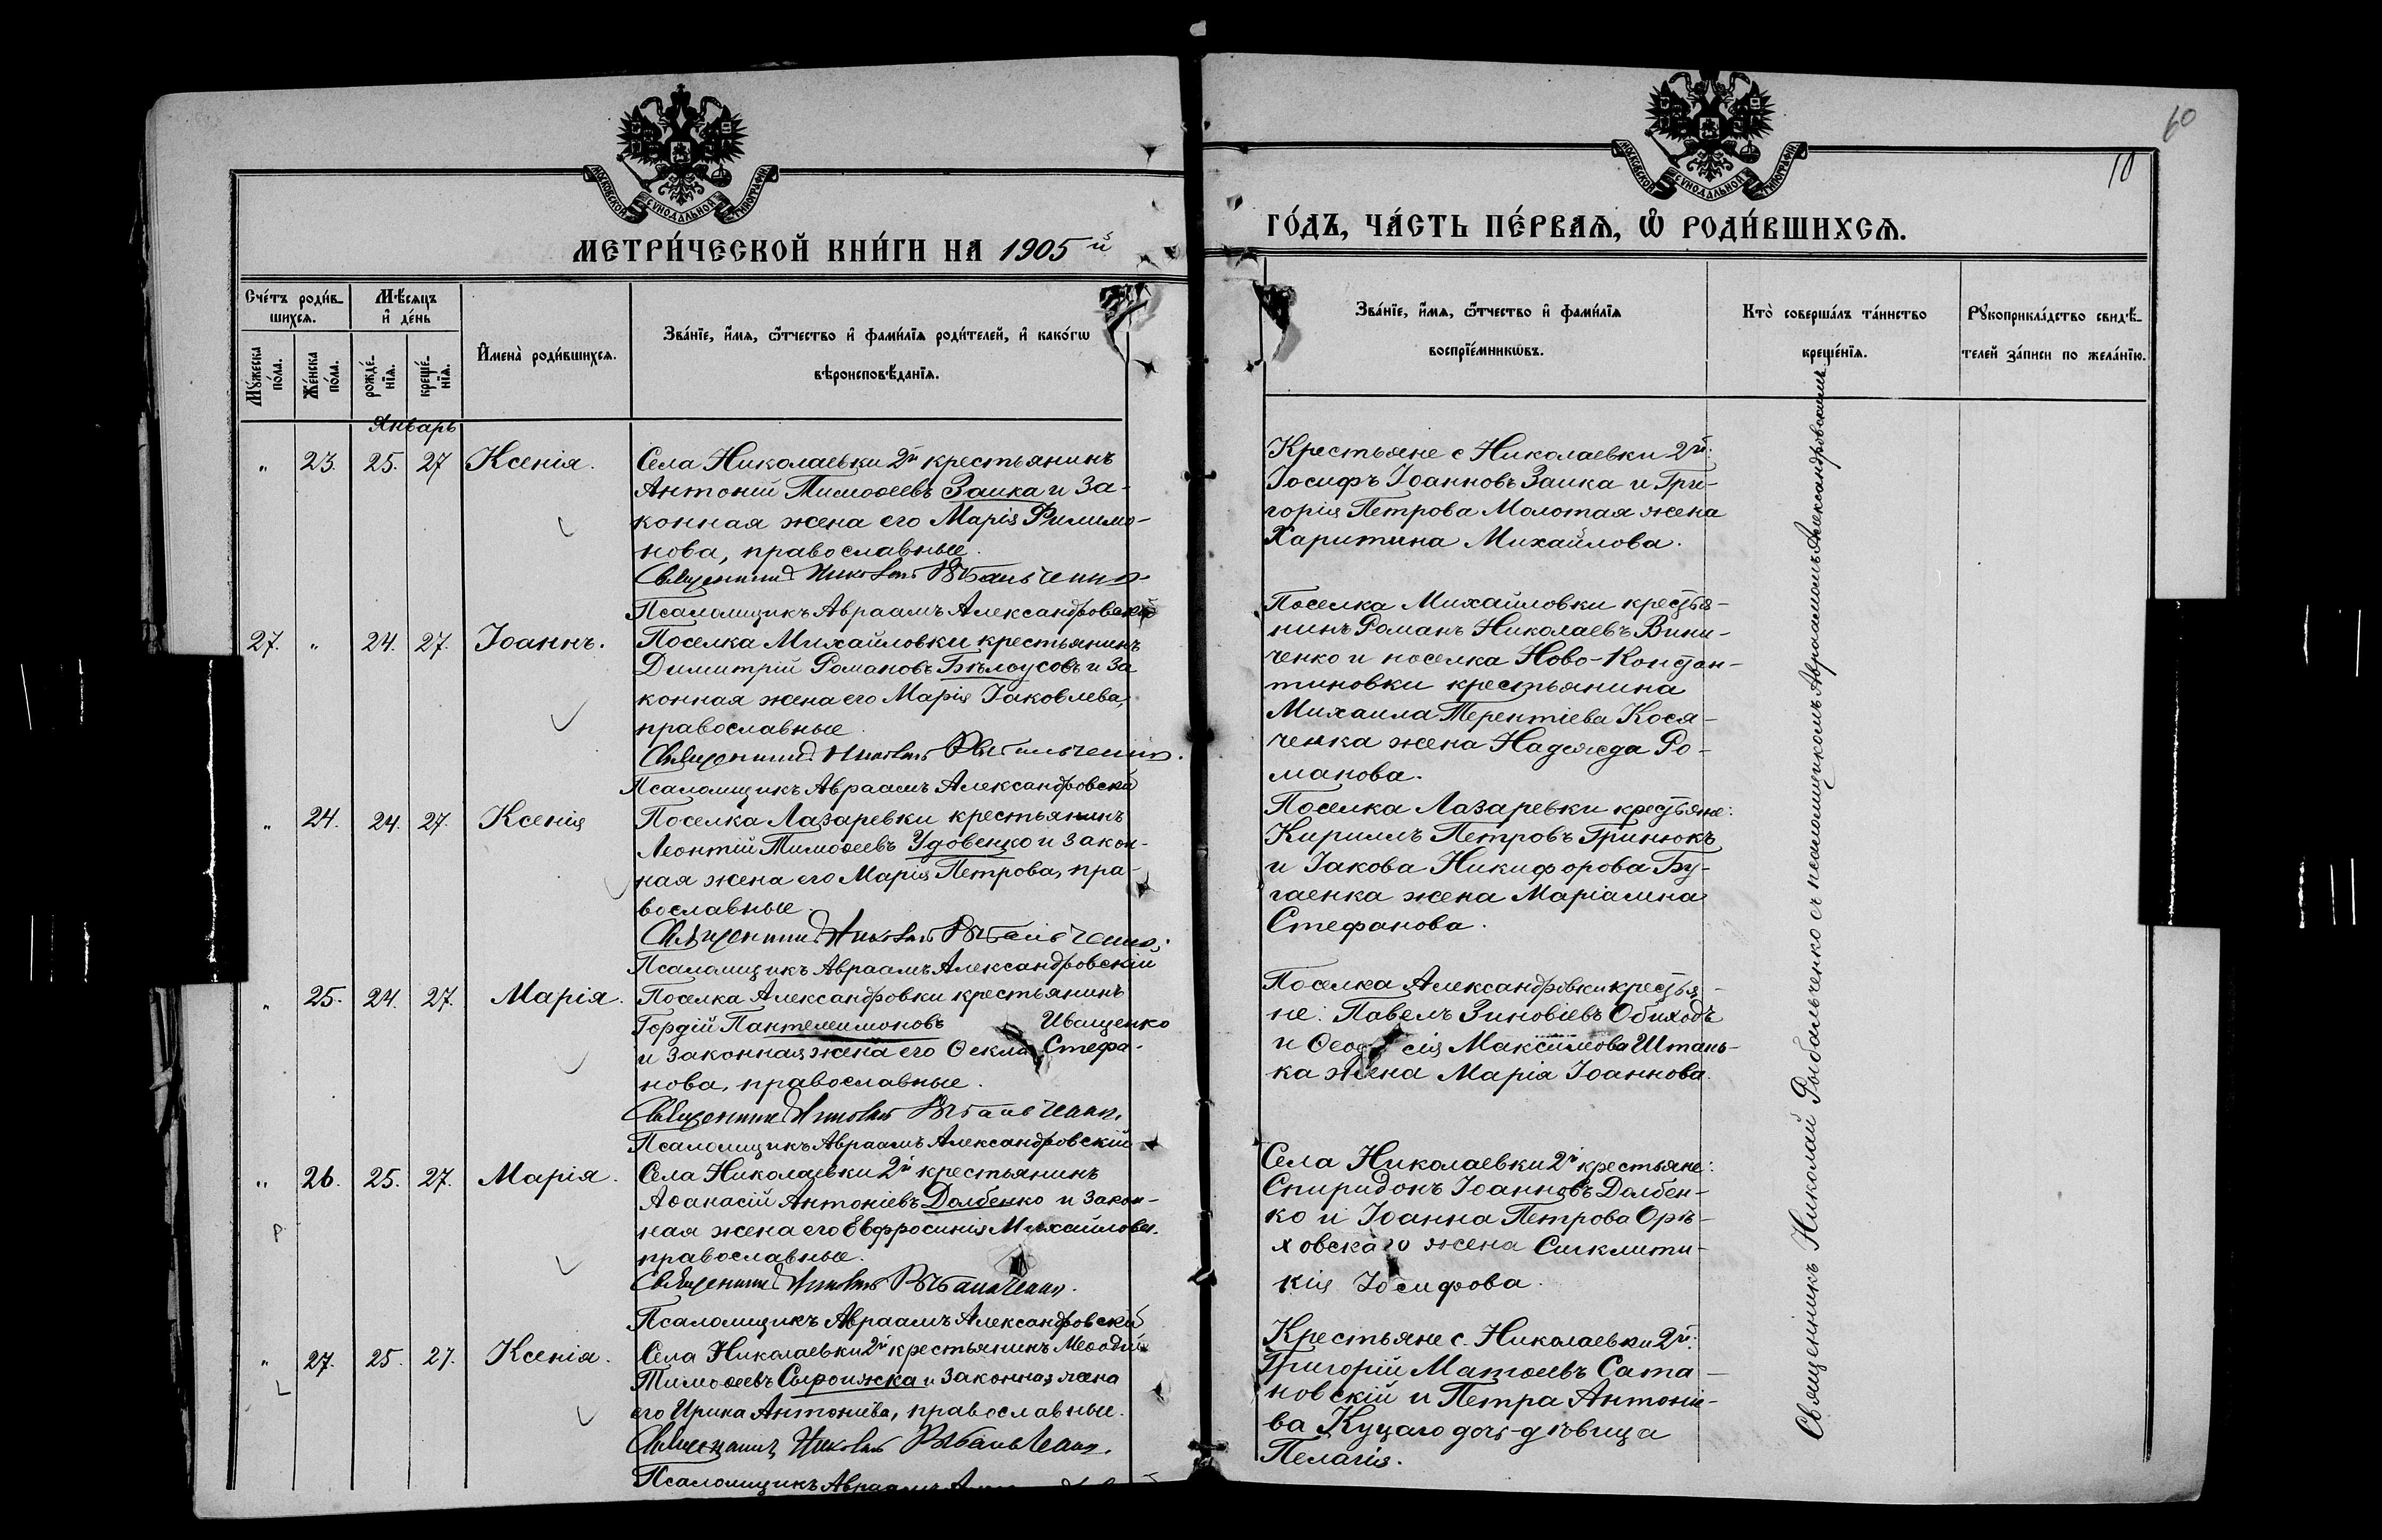 60
10
МОСКОВСКОЙ СѴНОДАЛЬНОЙ ТИПОГРАФІИ
МОСКОВСКОЙ СѴНОДАЛЬНОЙ ТИПОГРАФІИ
МЕТРИ́ЧЕСКОЙ КНИ́ГИ НА 1905й
ГО́ДЪ, ЧА́СТЬ ПЕ́РВАѦ, Ѡ РОДИ́ВШИХСѦ.
Сче́тъ роди́в-
шихсѧ.
Мꙋ́жеска по́ла.
Же́нска по́ла.
Мѣ́сѧцъ и де́нь
рожде́-
нїѧ.
креще́-
нїѧ.
Имена̀ роди́вшихсѧ.
Зва́нїе, и́мѧ, ѻ́тчество и фами́лїѧ роди́телей, и како́гѡ
вѣроисповѣ́данїѧ.
Зва́нїе, и́мѧ, ѻ́тчество и фами́лїѧ
воспрїе́мникѡвъ.
Кто̀ соверша́лъ та́инство
креще́нїѧ.
Рꙋкоприкла́дство свидѣ́-
телей за́писи по жела́нїю.
Январь
„ 23. 25. 27 Ксенія.
Села Николаевки 2й крестьянинъ
Антоній Тимоѳеевъ Заика и за-
конная жена его Марія Филимо-
нова, православные.
Священникъ Николай Рыбальченко
Псаломщикъ Авраамъ Александровскій
Крестьяне с Николаевки 2й:
Іосифъ Іоанновъ Заика и Гри-
горія Петрова Молотая жена
Харитина Михайлова.
27. „ 24. 27. Іоаннъ.
Поселка Михайловки крестьянинъ
Димитрій Романовъ Бѣлоусовъ и за
конная жена его Марія Іаковлева,
православные
Священникъ Николай Рыбальченко.
Псаломщикъ Авраамъ Александровскій
Поселка Михайловки крестья-
нинъ Романъ Николаевъ Вини-
ченко и поселка Ново-Констан-
тиновки крестьянина
Михаила Терентіева Кося-
ченка жена Надежда Ро-
манова.
„ 24. 24. 27. Ксенія
Поселка Лазаревки крестьянинъ
Леонтій Тимоѳеевъ Удовенко и закон-
ная жена его Марія Петрова, пра-
вославные.
Священникъ Николай Рыбальченко.
Псаломщикъ Авраамъ Александровскій
Поселка Лазаревки крестьяне:
Кириллъ Петровъ Гринюкъ
и Іакова Никифорова Бу-
гаенка жена Маріамна
Стефанова.
„ 25. 24. 27. Марія.
Поселка Александровки крестьянинъ
Гордій Пантелеимоновъ Иващенко
и законная жена его Ѳекла Стефа-
нова, православные.
Священникъ Николай Рыбальченко.
Псаломщикъ Авраамъ Александровскій
Поселка Александровки крестья-
не: Павелъ Зиновіевъ Обиходъ
и Ѳеод сія Максимова Штань-
ка жена Марія Іоаннова.
„ 26. 25. 27. Марія.
Села Николаевки 2й крестьянинъ
Аѳанасій Антоніевъ Долбенко и закон-
ная жена его Евфросинія Михайлова.
православные.
Священникъ Николай Рыбальченко.
Псаломщикъ Авраамъ Александровскій
Села Николаевки 2й крестьяне:
Спиридонъ Іоанновъ Долбен-
ко и Іоанна Петрова Орѣ-
ховскаго жена Сигклити-
кія Іосифова.
„ 27. 25. 27. Ксенія.
Села Николаевки 2й крестьянинъ Меѳодій
Тимоѳеевъ Сыроижка и законная жена
его Ирина Антоніева, православные.
Священникъ Николай Рыбальченко.
Псаломщикъ Авраамъ
Крестьяне с. Николаевки 2й:
Григорій Матѳеевъ Сата-
новскій и Петра Антоніе-
ва Куцаго дочь-дѣвица
Пелагія.
Священникъ Николай Рыбальченко съ псаломщикомъ Авраамомъ Александровскимъ.